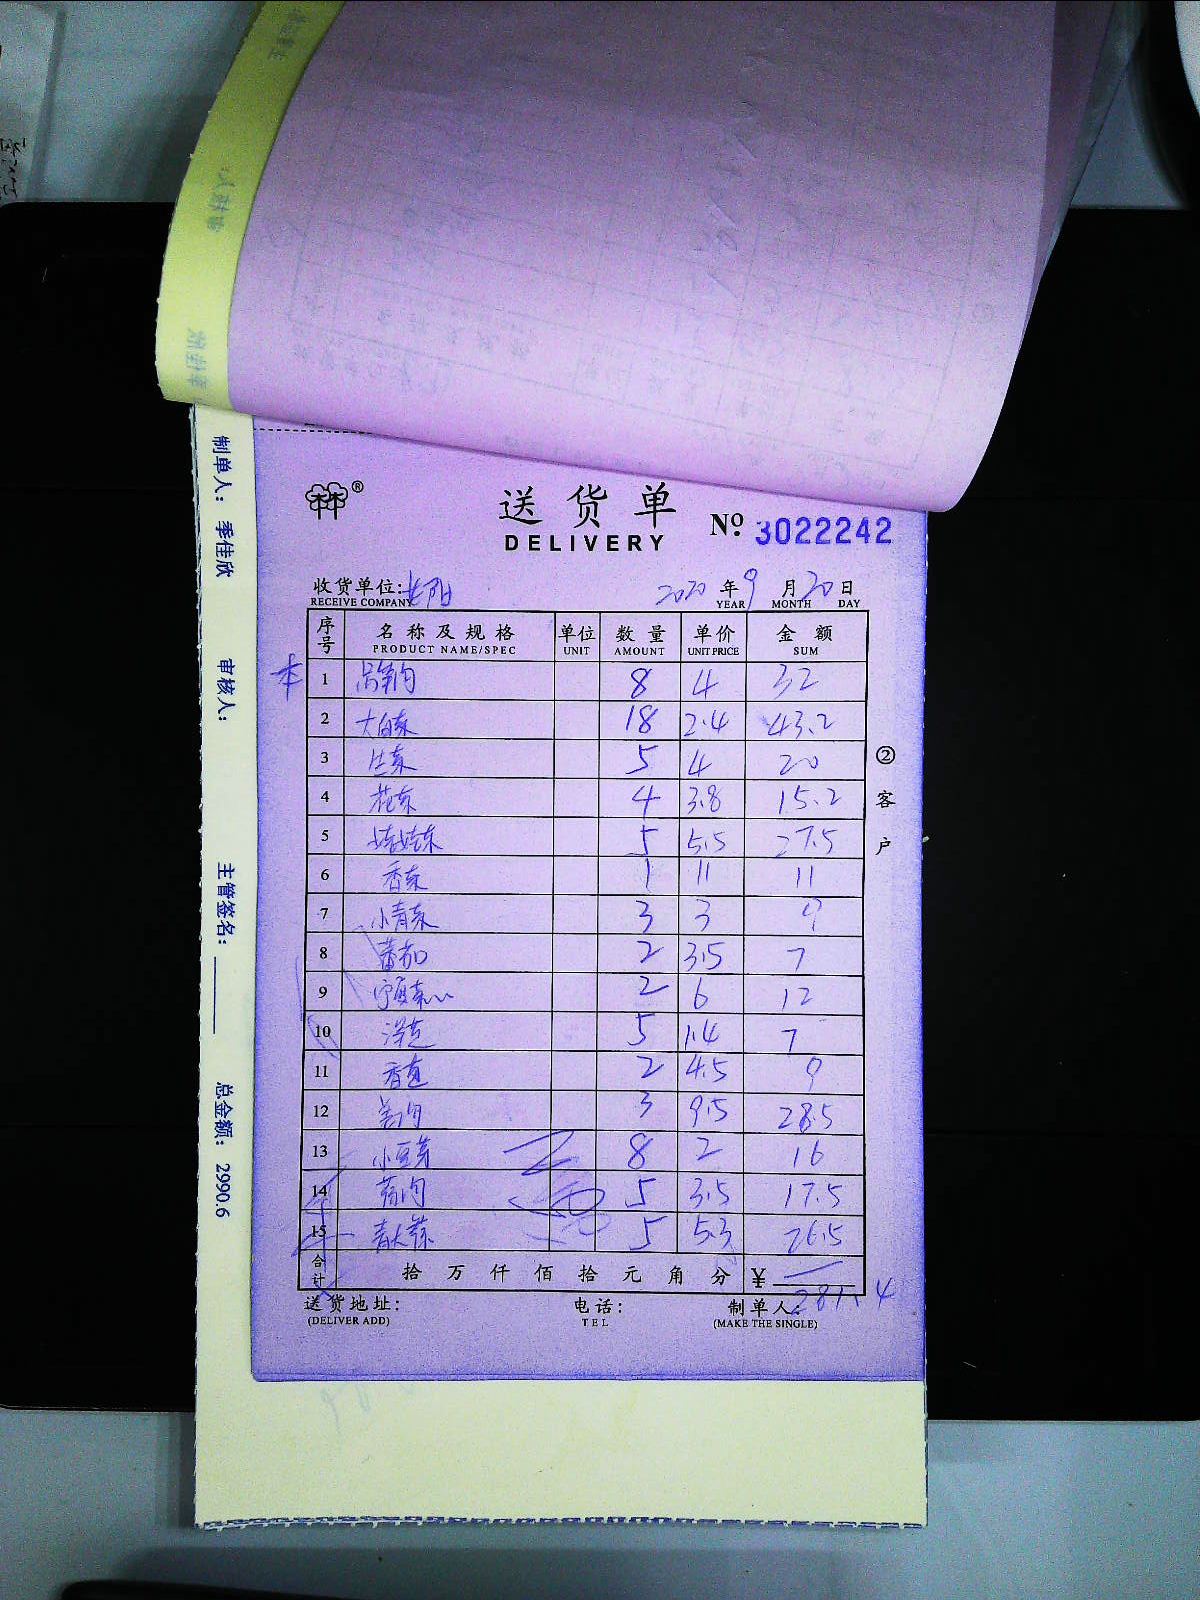 送货单
DELIVERY
No. 3022242
收货单位: 长阳 2020 年 9 月 20 日
RECEIVE COMPANY YEAR MONTH DAY
序号 名称及规格 单位 数量 单价 金额
PRODUCT NAME/SPEC UNIT AMOUNT UNIT PRICE SUM
1 8 4 32
2 大白菜 18 2.4 43.2
3 生菜 5 4 20
4 花菜 4 3.8 15.2
5 娃娃菜 5 5.5 27.5
6 香菜 1 11 11
7 小青菜 3 3 9
8 蕃茄 2 3.5 7
9 宁夏菜心 2 6 12
10 洋芋 5 1.4 7
11 香芹 2 4.5 9
12 3 9.5 28.5
13 小豆芽 8 2 16
14 5 3.5 17.5
15 青大蒜 5 5.3 26.5
合计 拾万仟佰拾元角分 ¥ 281.4
送货地址: 电话: 制单人:
(DELIVER ADD) TEL (MAKE THE SINGLE)
②客户
制单人: 季佳欣 审核人: 主管签名: 总金额: 2990.6